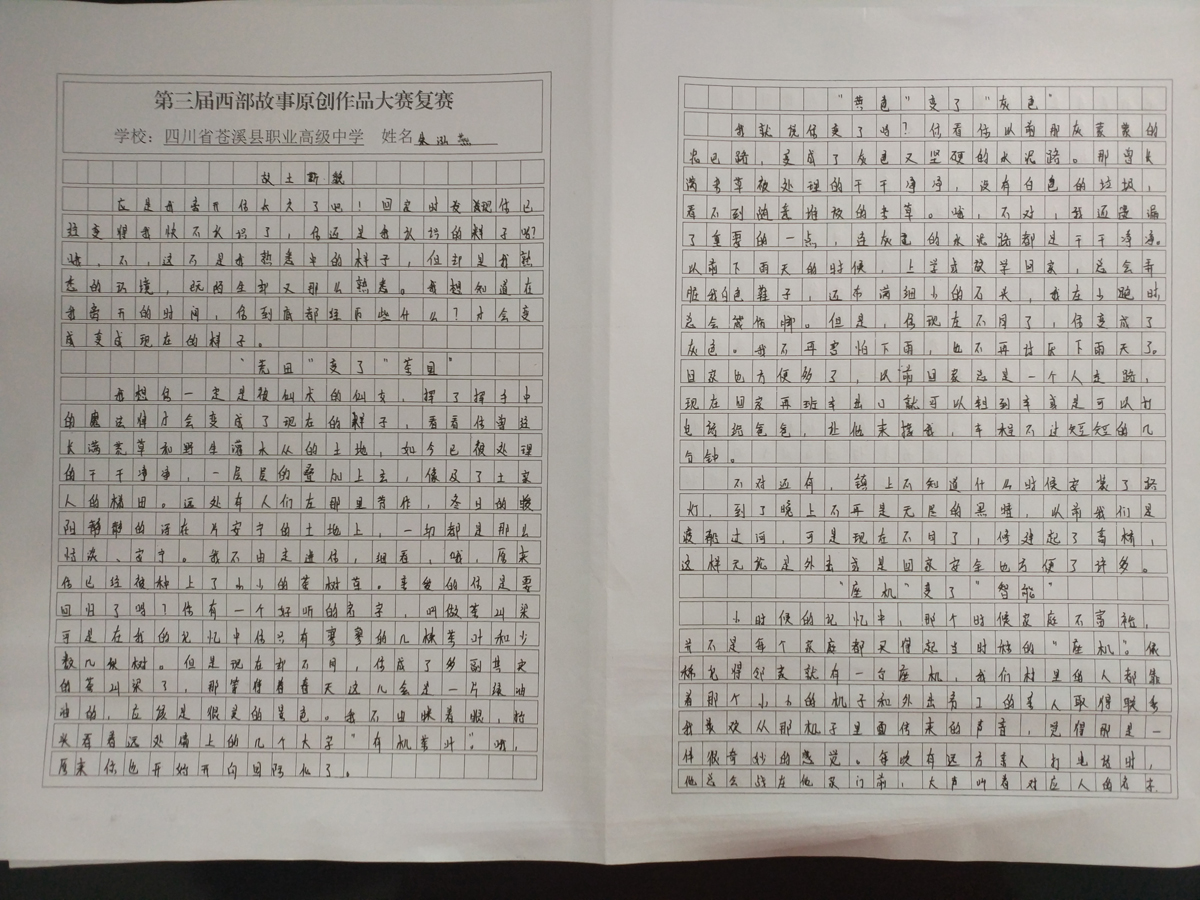 第三届西部故事原创作品大赛复赛
学校：四川省苍溪县职业高级中学 姓名
故土新貌
应是我离开你太久了吧！回家时发现你已
经变得我快不认识了，你还是我认识的样子吗？
，不，这不是我熟悉中的样子，但却是我熟
悉的环境，既陌生却又那么熟悉。我想知道在
我离开的时间，你到底都经历些什么？才会变
成变成现在的样子。
“荒田”变了“茶里”
我想你一定是被仙术的仙女，挥了挥手中
的魔法棒才会变成了现在的样子，看看你曾这
长满荒草和野生灌木丛的土地，如今已被处理
的干干净净，一层层的叠加上去，像及了土家
人的梯田。远处有人们在那里劳作，冬日的暖
阳静静的洒在片安宁的土地上，一切都是那么
恬淡、安宁。我不由走进你，细看，哦，原来
你已经被种上了小小的茶树苗。亲爱的你是要
回归了吗？你有一个好听的名字，叫做茶叫梁
可是在我的记忆中你只有寥寥的几株茶叶和少
数几纵树。但是现在却不同，你成了多到其实
的茶叫梁了，那等待着春天这儿会是一片绿油
油的，应该是很美的景色。我不由眯着眼，抬
头看着远处墙上的几个大字“有机茶叶”。哦，
原来你也开始开向国际化了。
“黄色”变了“灰色”
我就说你变了吗？你看你以前那灰蒙蒙的
泥巴路，变成了灰色又坚硬的水泥路。那曾长
满杂草被处理的干干净净，没有白色的垃圾，
看不到随意堆放的杂草。哦，不对，我还漫漏
了重要的一点，连灰色的水泥路都是干干净净。
以前下雨天的时候，上学或放学回家，总会弄
脏我白色鞋子，还布满细小的石头，我在小跑时
总会崴伤脚。但是，你现在不同了，你变成了
灰色。我不再害怕下雨，也不再讨厌下雨天了。
回家也方便多了，以前回家总是一个人走路，
现在回家再班车去了就可以到到车真是可以打
电话给爸爸，让他来接我，车程不过短短的几
分钟。
不对还有，镇上不知道什么时候安装了路
灯，到了晚上不再是无尽的黑暗，以前我们是
渡船过河，可是现在不同了，修建起了高桥，
这样无论是外去或是回家安全也方便了许多。
“座机”变了“智能”
小时候的记忆中，那个时候家庭不富裕，
并不是每个家庭都买得起当时好的“座机”。依
稀记得邻家就有一台座机，我们村里的人都靠
着那个小小的机子和外出务工的亲人取得联系
我喜欢从那机子里面传来的声音，觉得那是一
件很奇妙的感觉。每晚有远方亲人打电话时，
他总会站在他家门前，大声叫着对应人的名字